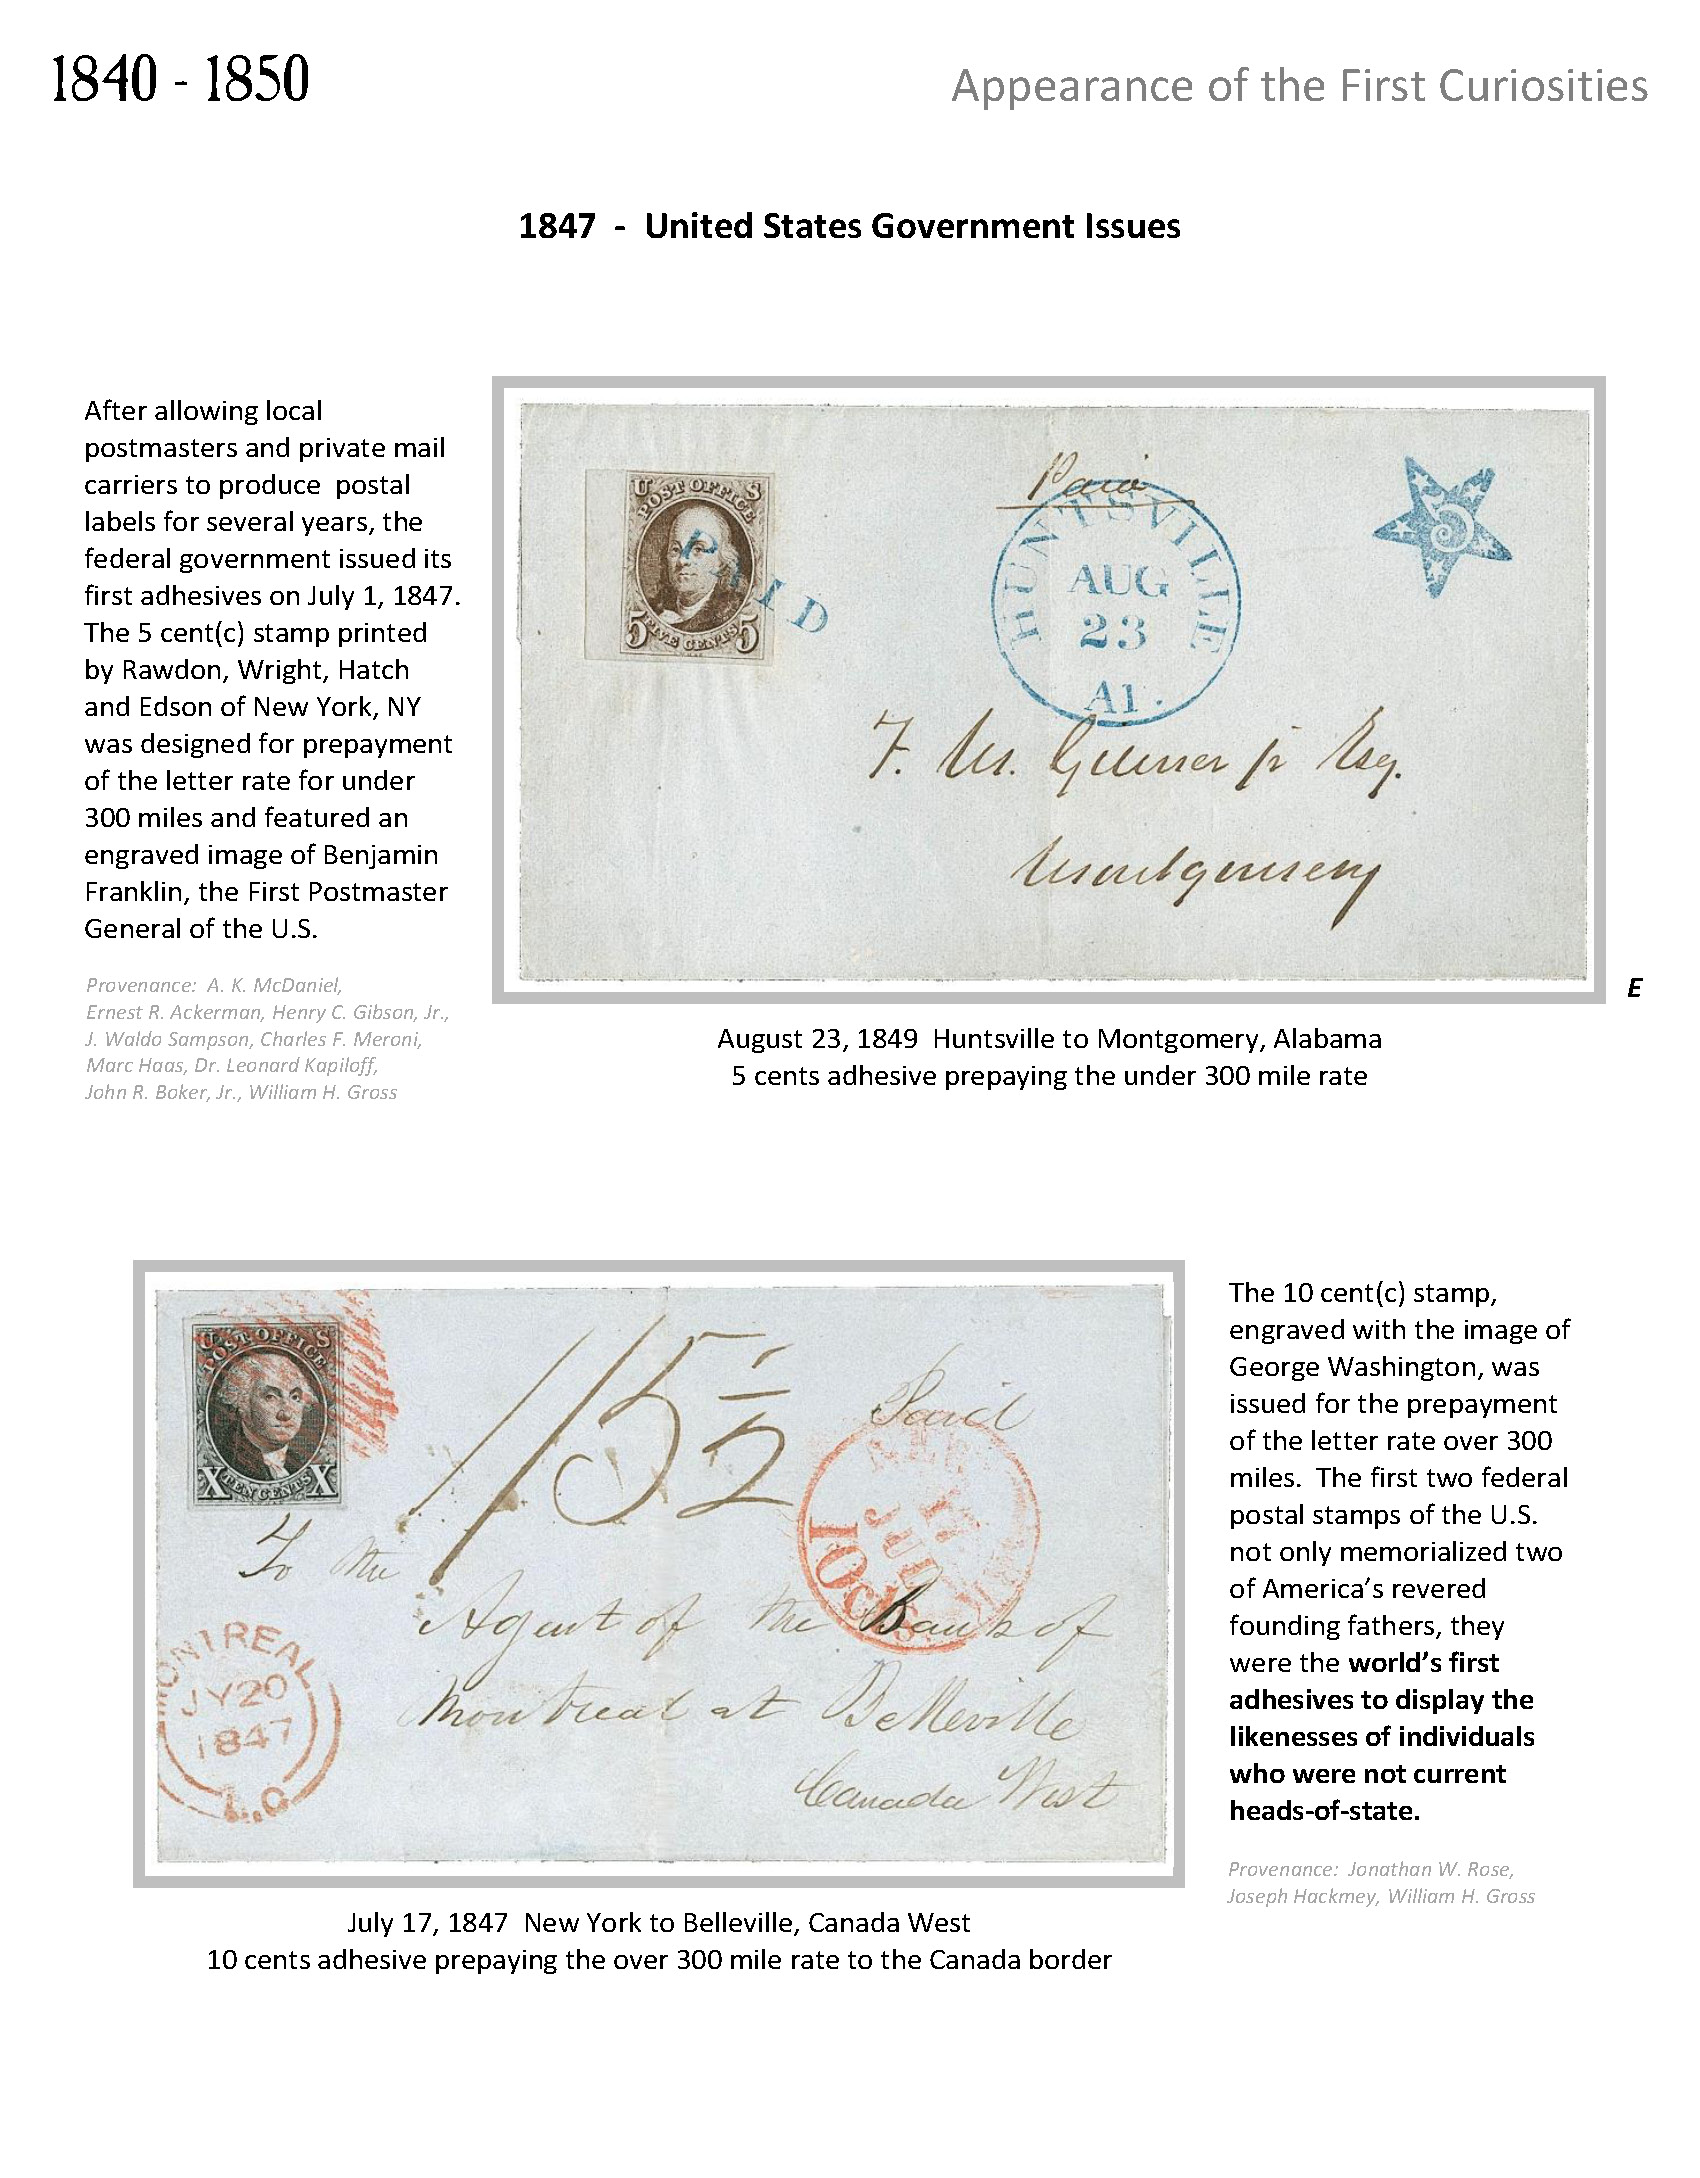 1840 - 1850
Appearance of the First Curiosities
1847 - United States Government Issues
After allowing local
postmasters and private mail
carriers to produce postal
labels for several years, the
federal government issued its
first adhesives on July 1, 1847.
The 5 cent(c) stamp printed
by Rawdon, Wright, Hatch
and Edson of New York, NY
was designed for prepayment
of the letter rate for under
300 miles and featured an
engraved image of Benjamin
Franklin, the First Postmaster
General of the U.S.
Provenance: A. K. McDaniel,
Ernest R. Ackerman, Henry C. Gibson, Jr.,
J. Waldo Sampson, Charles F. Meroni,
Marc Haas, Dr. Leonard Kapiloff,
John R. Boker, Jr., William H. Gross
U S
POST OFFICE
5 FIVE CENTS 5
PAID
Paid
HUNTSVILLE
AUG
23
Al.
F. M. jr Esq.
Montgomery
E
August 23, 1849 Huntsville to Montgomery, Alabama
5 cents adhesive prepaying the under 300 mile rate
U S
POST OFFICE
X TEN CENTS X
1/5½
Paid
NEW
17
JUL
10cts
To the
Agent of the Bank of
Montreal at Belleville
Canada West
MONTREAL
JY 20
1847
L.C
The 10 cent(c) stamp,
engraved with the image of
George Washington, was
issued for the prepayment
of the letter rate over 300
miles. The first two federal
postal stamps of the U.S.
not only memorialized two
of America's revered
founding fathers, they
were the world's first
adhesives to display the
likenesses of individuals
who were not current
heads-of-state.
Provenance: Jonathan W. Rose,
Joseph Hackmey, William H. Gross
July 17, 1847 New York to Belleville, Canada West
10 cents adhesive prepaying the over 300 mile rate to the Canada border